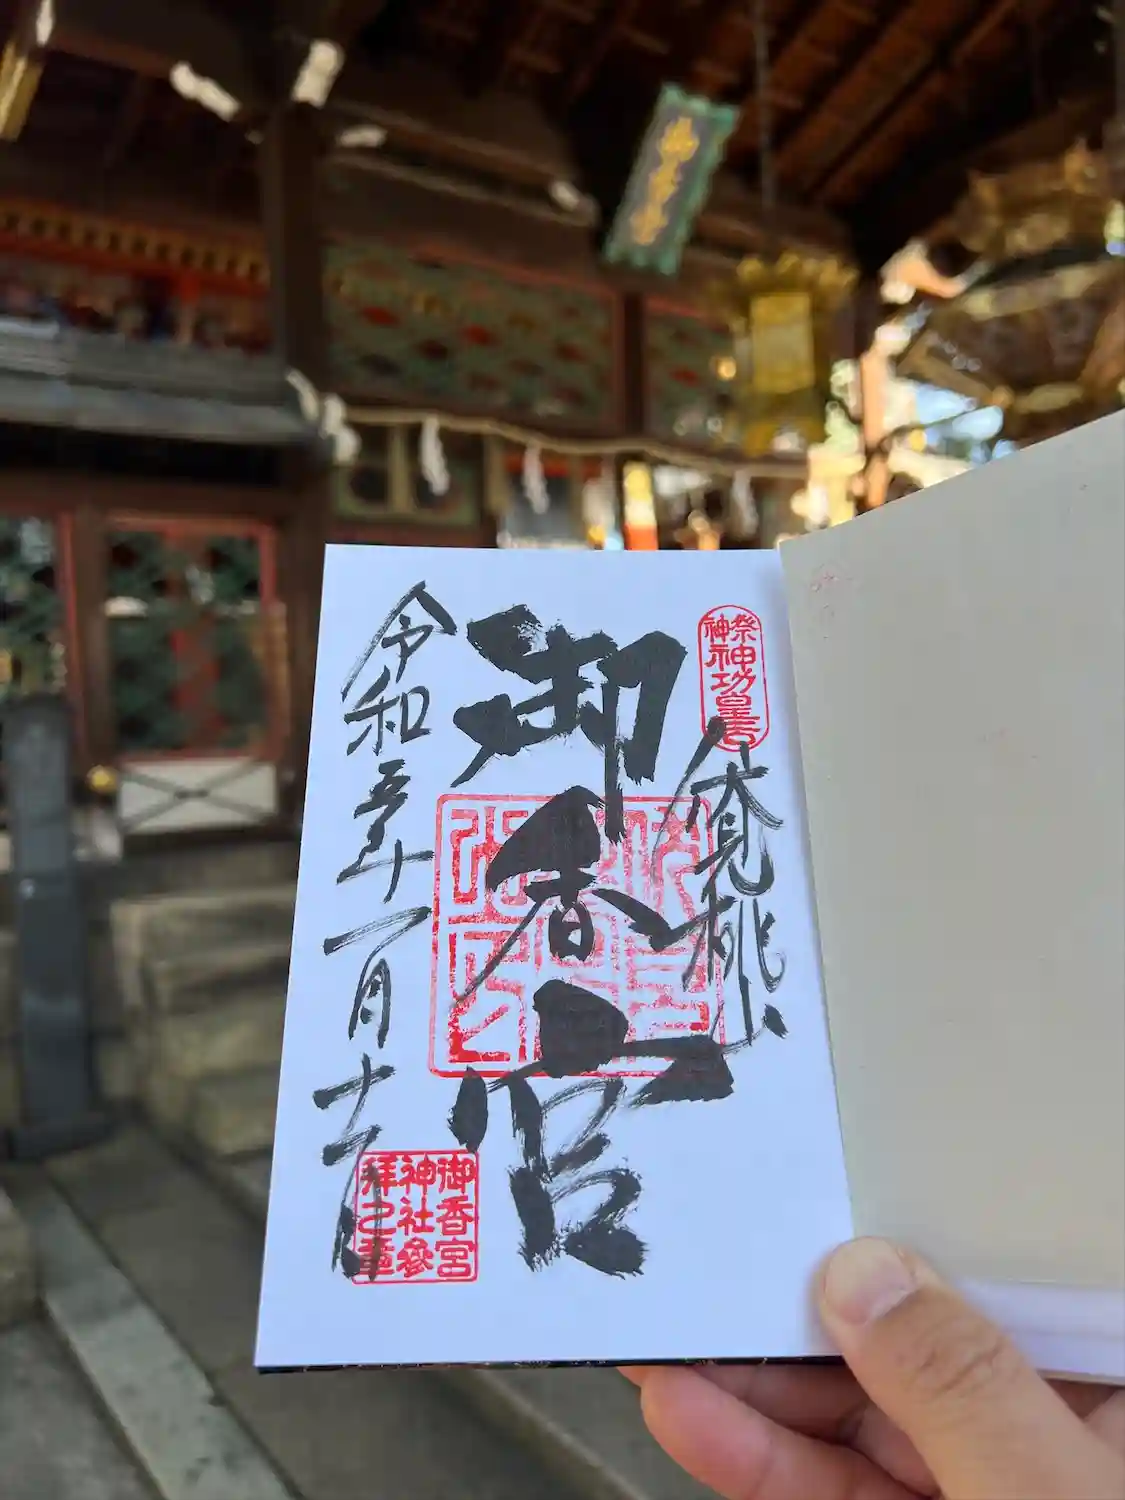 御香宮
祭神
神功皇后
伏見桃山
御香宮
神社參
拜之章
令和五年一月十一日